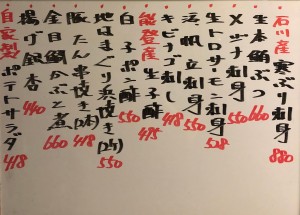 石川産 寒ぶり刺身 880
生本鮪ぶつ 660
メジナ刺身 550
生トロサーモン刺身 528
活帆立刺身 550
キビナゴ刺し 418
能登産 生子酢 495
白子ポン酢 550
地はまぐり浜焼き(2ケ) 550
豚たん串焼き(2本) 418
金目鯛かぶと煮 660
揚げ銀杏 440
自家製 ポテトサラダ 418